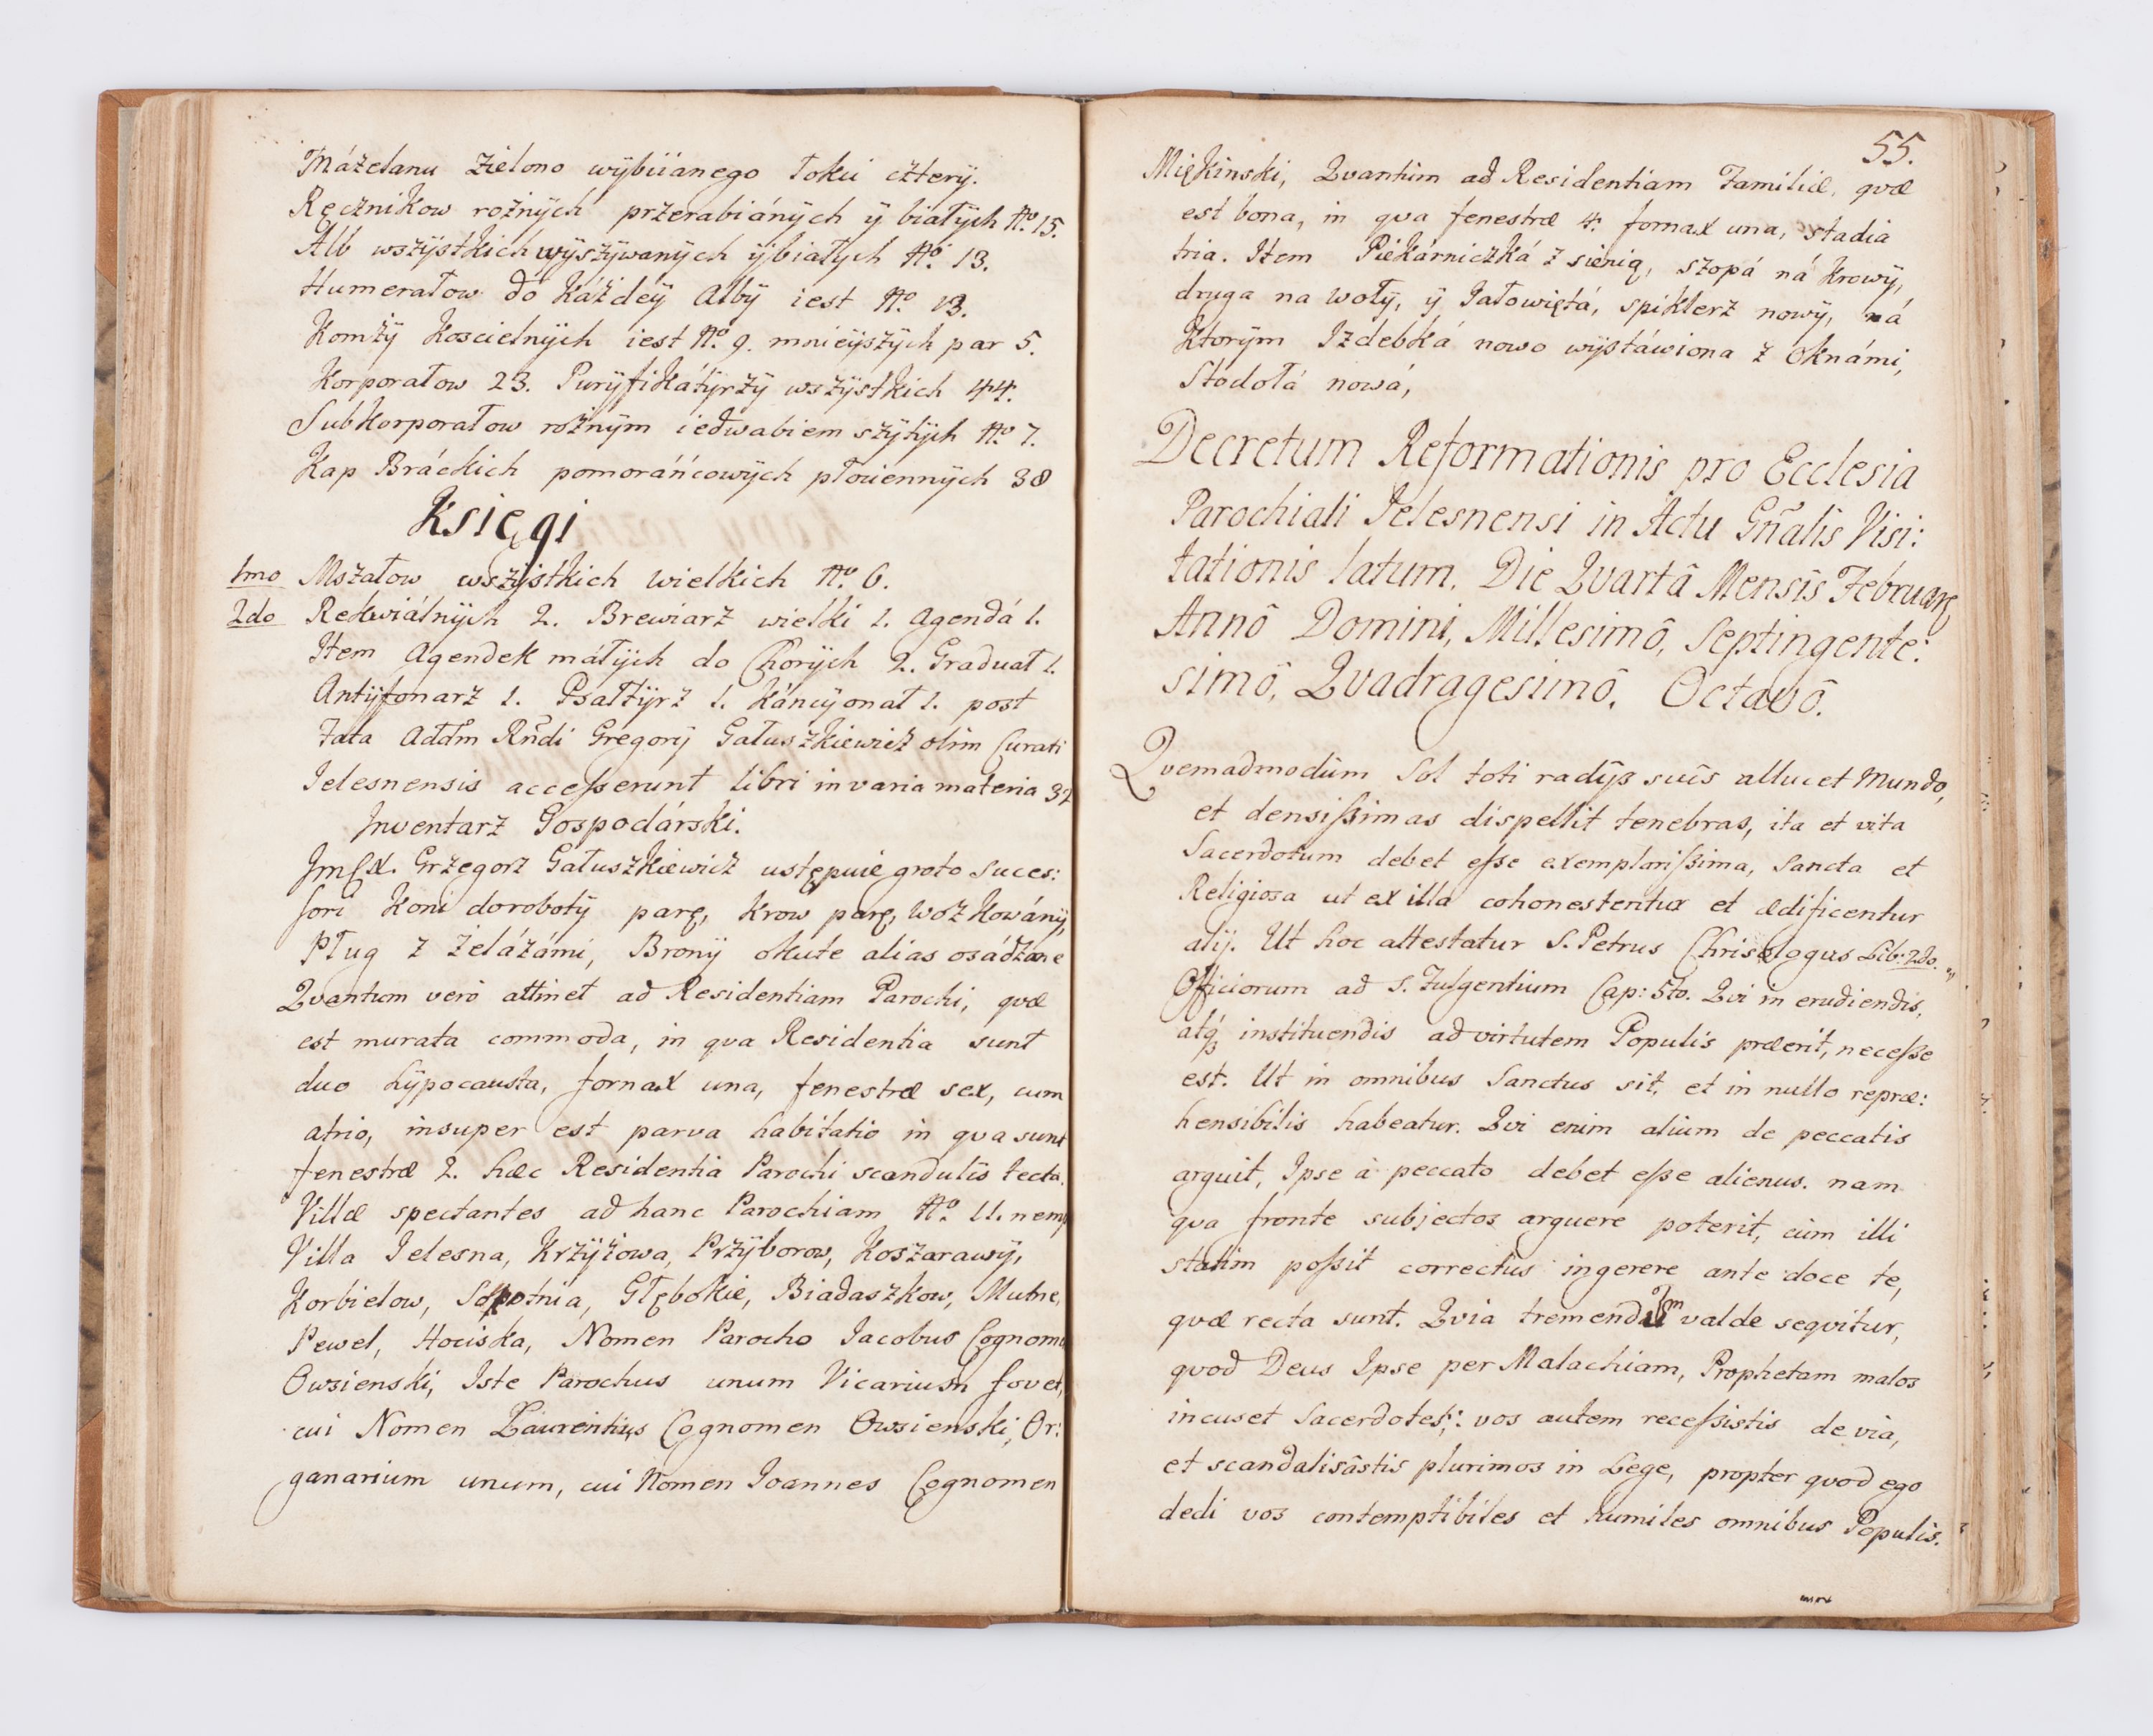 Máżelanu zielono wÿbiianego łokci czterÿ.
Ręcznikow rożnÿch przerabiánÿch ÿ białÿch No. 15.
Alb wszÿstkich wÿszÿwanÿch ÿ białÿch No. 13.
Humerałow do káżdeÿ Albÿ iest No. 13.
Komżÿ koscielnÿch iest No. 9. mnieÿszÿch par 5.
Korporałow 23. Purÿfikátÿrzÿ wszÿstkich 44.
Subkorporałow rożnÿm iedwabiem szÿtÿch No. 7.
Kap Bráckich pomoráńcowÿch płociennÿch 38
Księgi
1mo Mszałow wszÿstkich wielkich No. 6.
2do Rekwiálnÿch 2. Brewiarz wielki 1. Agendá 1.
Item Agendek máłÿch do Chorÿch 2. Graduał 1.
Antÿfonarz 1. Psałtÿrz 1. Káncÿonał 1. post
Fata Adm Rndi Gregorij Gałuszkiewicz olim Curati
Jelesnensis accesserunt libri in varia materia
Jnwentarz Gospodárski.
JmX. Grzegorz Gałuszkiewicz ustępuie grato Suces:
sori koni dorobotÿ parę, krow parę, woz kowánÿ,
Pług z żelázámi, Bronÿ okute alias osádzane
Qvantum verò attinet ad Residentiam Parochi, qvæ
est murata commoda, in qva Residentia sunt
duo hÿpocausta, fornax una, fenestræ sex, cum
atrio, insuper est parva habitatio in qva sunt
fenestræ 2. hæc Residentia Parochi scandulis tecta.
Villæ spectantes ad hanc Parochiam No. 11. nemp
Villa Jelesna, Krzÿżowa, Przÿborow, Koszarawÿ,
Korbielow, Sopotnia, Głębokie, Biadaszkow, Mutne,
Pewel, Hociska, Nomen Parocho Jacobus Cognomen
Owsienski, Iste Parochus unum Vicarium fovet,
cui Nomen Laurentius Cognomen Owsienski, Or:
ganarium unum, cui Nomen Joannes Cognomen
55.
Miękinski, Qvantum ad Residentiam Familiæ, qvæ
est bona, in qva fenestræ 4. fornax una, stadia
tria. Item Piekárniczká z sienią, szopá ná krowÿ,
druga na wołÿ, ÿ Jałowiętá, spiklerz nowÿ, ná
ktorÿm Jzdebká nowo wÿstáwiona z oknámi,
Stodołá nowá,
Decretum Reformationis pro Ecclesia
Parochiali Jelesnensi in Actu Gñalis Visi:
tationis latum, Die Qvartâ Mensis Februarii
Annô Domini, Millesimô, Septingente:
simô, Qvadragesimô, Octavô.
Qvemadmodùm Sol toti radijs suis allucet Mundo,
et densissimas dispellit tenebras, ita et vita
Sacerdotum debet esse exemplarissima, Sancta et
Religiosa ut ex illa cohonestentur et ædificentur
alij. Ut hoc attestatur S. Petrus Chrisologus Lib: 2do.
Officiorum ad S. Fulgentium Cap: 5to. Qvi in erudiendis,
atq́ instituendis ad virtutem Populis præerit, necesse
est. Ut in omnibus Sanctus sit, et in nullo repræ:
hensibilis habeatur. Qvi enim alium de peccatis
arguit, Ipse à peccato debet esse alienus. nam
qva fronte subjectos arguere poterit, cùm illi
statim possit correctus ingerere ante doce te,
qvæ recta sunt. Qvia tremendum valde seqvitur,
qvod Deus Ipse per Malachiam, Prophetam malos
incuset Sacerdotes; vos autem recessistis de via,
et scandalisâstis plurimos in Lege, propter qvod ego
dedi vos contemptibiles et humiles omnibus Populis.